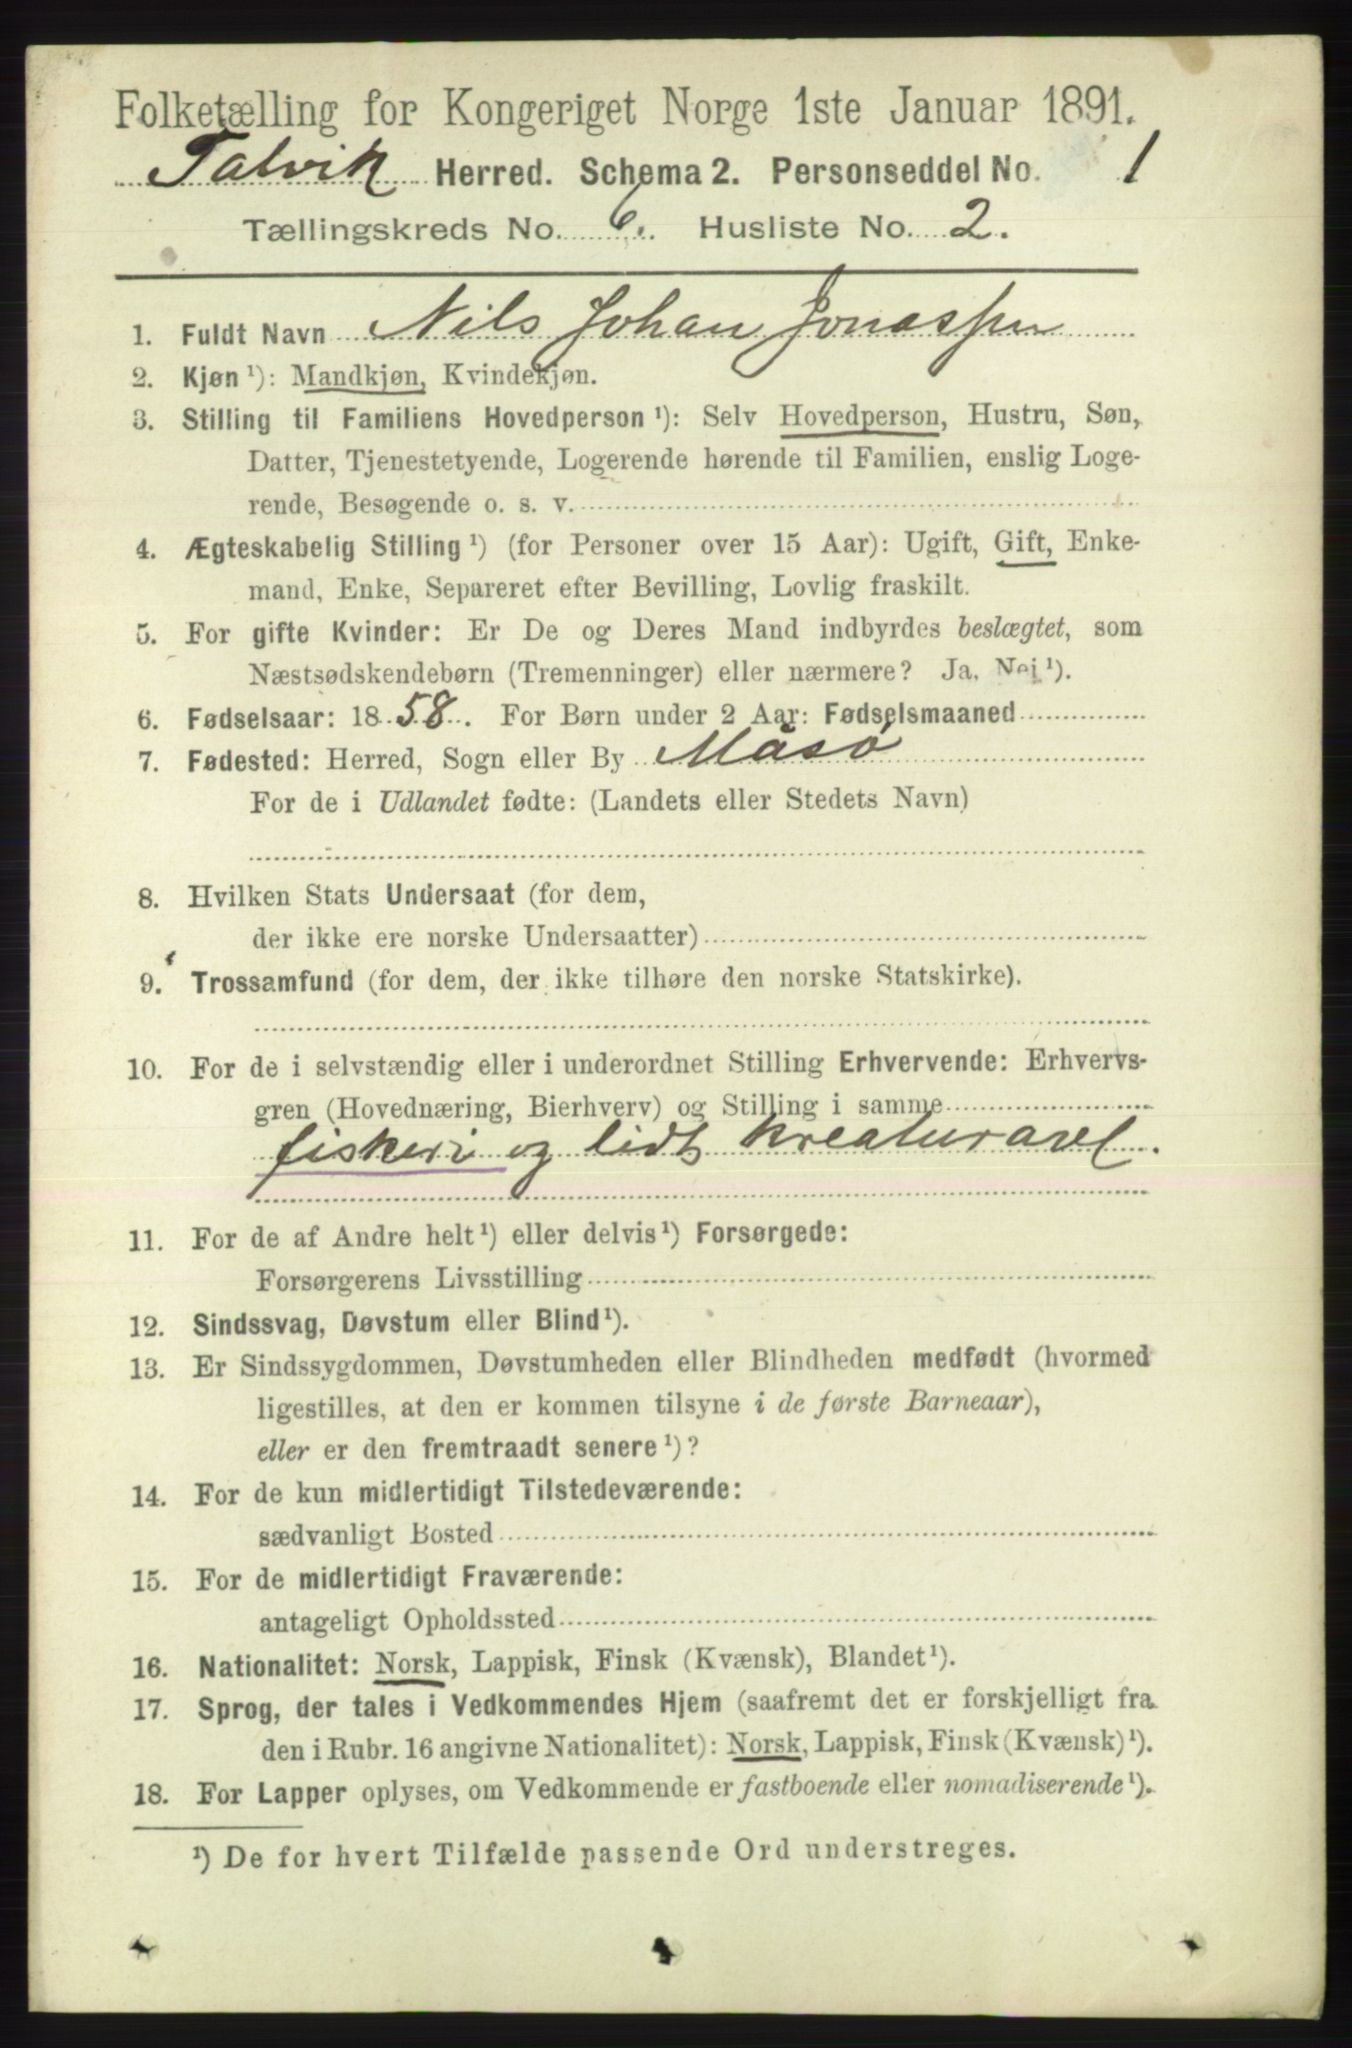 Folketælling for Kongeriget Norge 1ste Januar 1891.
Talvik Herred. Schema 2. Personseddel No. 1
Tællingskreds No. 6. Husliste No. 2.
1. Fuldt Navn Nils Johan Jonassen
2. Kjøn ¹): Mandkjøn, Kvindekjøn.
3. Stilling til Familiens Hovedperson ¹): Selv Hovedperson, Hustru, Søn,
Datter, Tjenestetyende, Logerende hørende til Familien, enslig Loge-
rende, Besøgende o. s. v.
4. Ægteskabelig Stilling ¹) (for Personer over 15 Aar): Ugift, Gift, Enke-
mand, Enke, Separeret efter Bevilling, Lovlig fraskilt.
5. For gifte Kvinder: Er De og Deres Mand indbyrdes beslægtet, som
Næstsødskendebørn (Tremenninger) eller nærmere? Ja, Nei ¹).
6. Fødselsaar: 1858. For Børn under 2 Aar: Fødselsmaaned
7. Fødested: Herred, Sogn eller By Måsø
For de i Udlandet fødte: (Landets eller Stedets Navn)
8. Hvilken Stats Undersaat (for dem,
der ikke ere norske Undersaatter)
9. Trossamfund (for dem, der ikke tilhøre den norske Statskirke).
10. For de i selvstændig eller i underordnet Stilling Erhvervende: Erhvervs-
gren (Hovednæring, Bierhverv) og Stilling i samme
fiskeri og lidt kreaturavl.
11. For de af Andre helt ¹) eller delvis ¹) Forsørgede:
Forsørgerens Livsstilling
12. Sindssvag, Døvstum eller Blind ¹).
13. Er Sindssygdommen, Døvstumheden eller Blindheden medfødt (hvormed
ligestilles, at den er kommen tilsyne i de første Barneaar),
eller er den fremtraadt senere ¹)?
14. For de kun midlertidigt Tilstedeværende:
sædvanligt Bosted
15. For de midlertidigt Fraværende:
antageligt Opholdssted
16. Nationalitet: Norsk, Lappisk, Finsk (Kvænsk), Blandet ¹).
17. Sprog, der tales i Vedkommendes Hjem (saafremt det er forskjelligt fra
den i Rubr. 16 angivne Nationalitet): Norsk, Lappisk, Finsk (Kvænsk) ¹).
18. For Lapper oplyses, om Vedkommende er fastboende eller nomadiserende ¹).
¹) De for hvert Tilfælde passende Ord understreges.